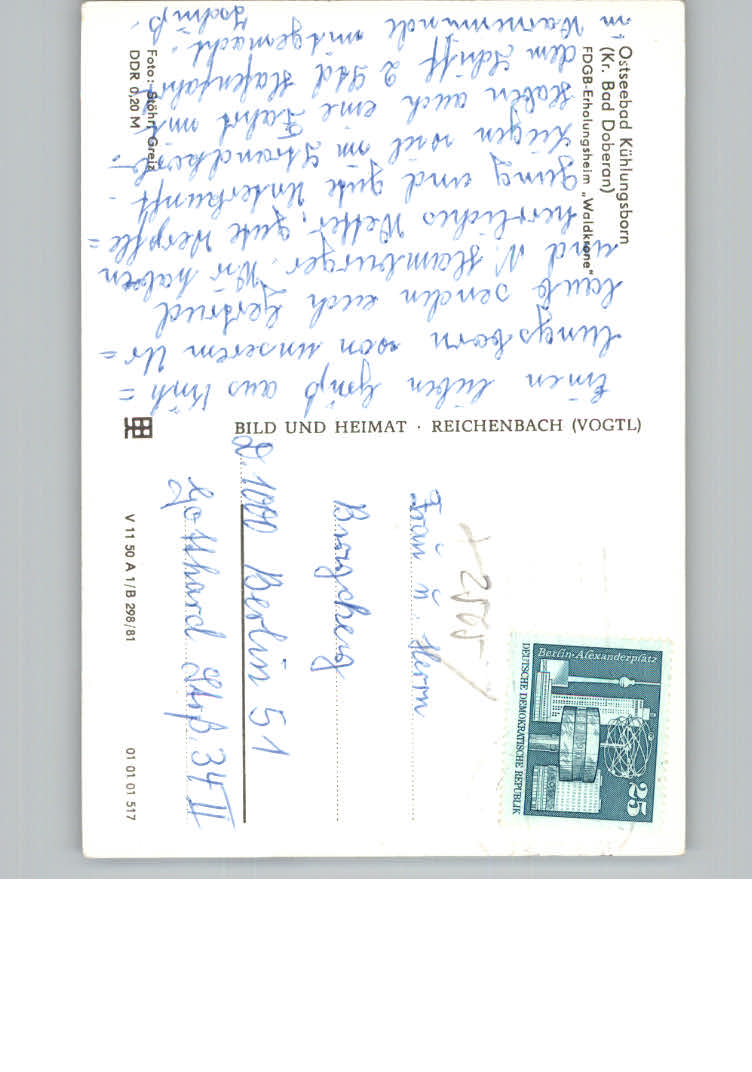 Ostseebad Kühlungsborn
(Kr. Bad Doberan)
FDGB-Erholungsheim „Waldkrone"
Foto: Stöhr, Greiz
DDR 0,20 M
Einen lieben Gruß aus Küh=
lungsborn von unserem Ur=
laub senden euch Gertrud
und N. Hamburger. Wir haben
herrliches Wetter, gute Verpfle=
gung und gute Unterkunft.
Liegen viel im Strandkorb.
Haben auch eine Fahrt mit
dem Schiff 2 Std Hafenfahrt
in Warnemünde mitgemacht.
BILD UND HEIMAT · REICHENBACH (VOGTL)
V 11 50 A 1/B 298/81
01 01 01 517
Berlin-Alexanderplatz
DEUTSCHE DEMOKRATISCHE REPUBLIK
25
2565
Frau u. Herrn
D. 1000 Berlin 51
Gotthard Str. 34 II